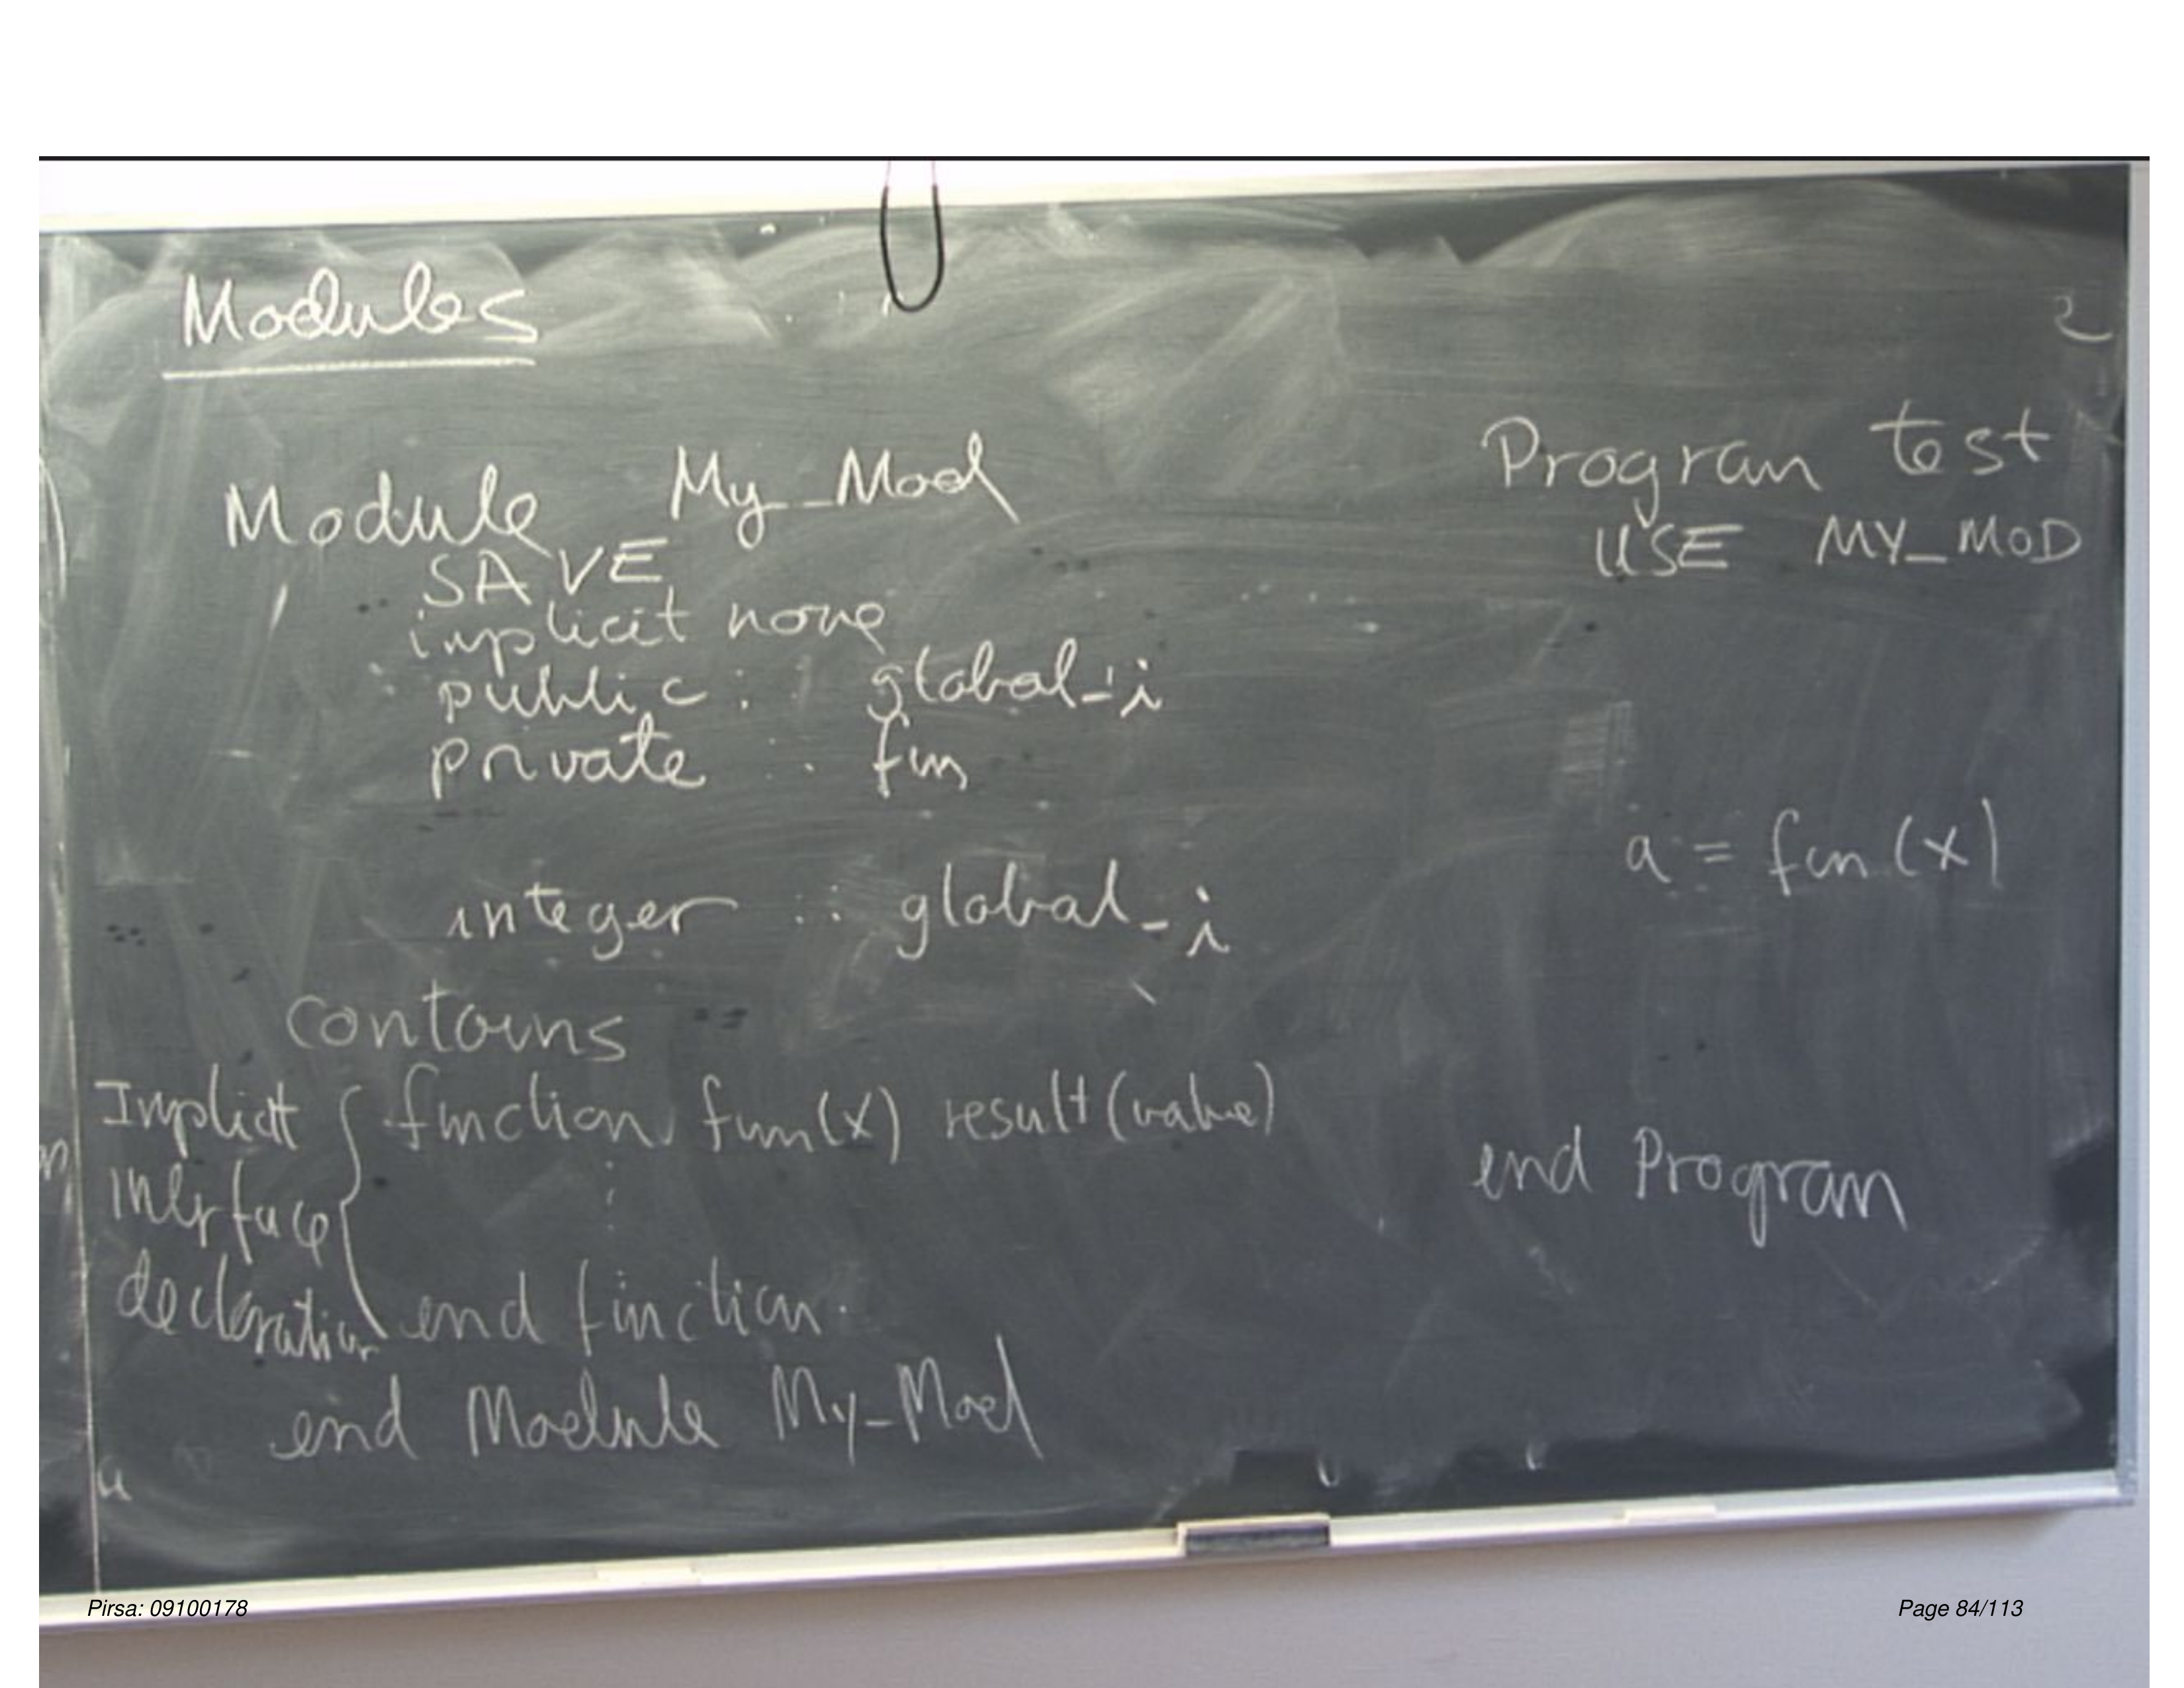 Modules
Module My_Mod
SAVE
implicit none
public :: global_i
private :: fun
integer :: global_i
contains
Implicit
interface
declaration
function fun(x) result(value)
⋮
end function
end Module My_Mod
Program test
USE MY_MOD
a = fun(x)
end Program
Pirsa: 09100178
Page 84/113